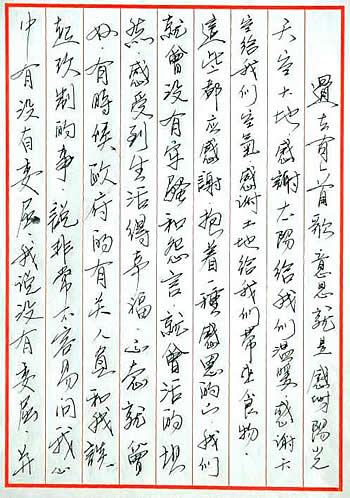 過去有一首歌,意思就是感謝陽光
天空大地,感謝太陽給我們溫暖,感謝天
空給我們空氣,感謝土地給我們帶食物.
這些都应感謝.抱着一種感恩的心,我們
就會没有牢騷和怨言.就會活的坦
然,感受到生活得幸福.心态就會
好.有時候政府的有关人員和我談
起改制的事.説非常不容易,问我心
中有没有委屈.我说没有委屈.并